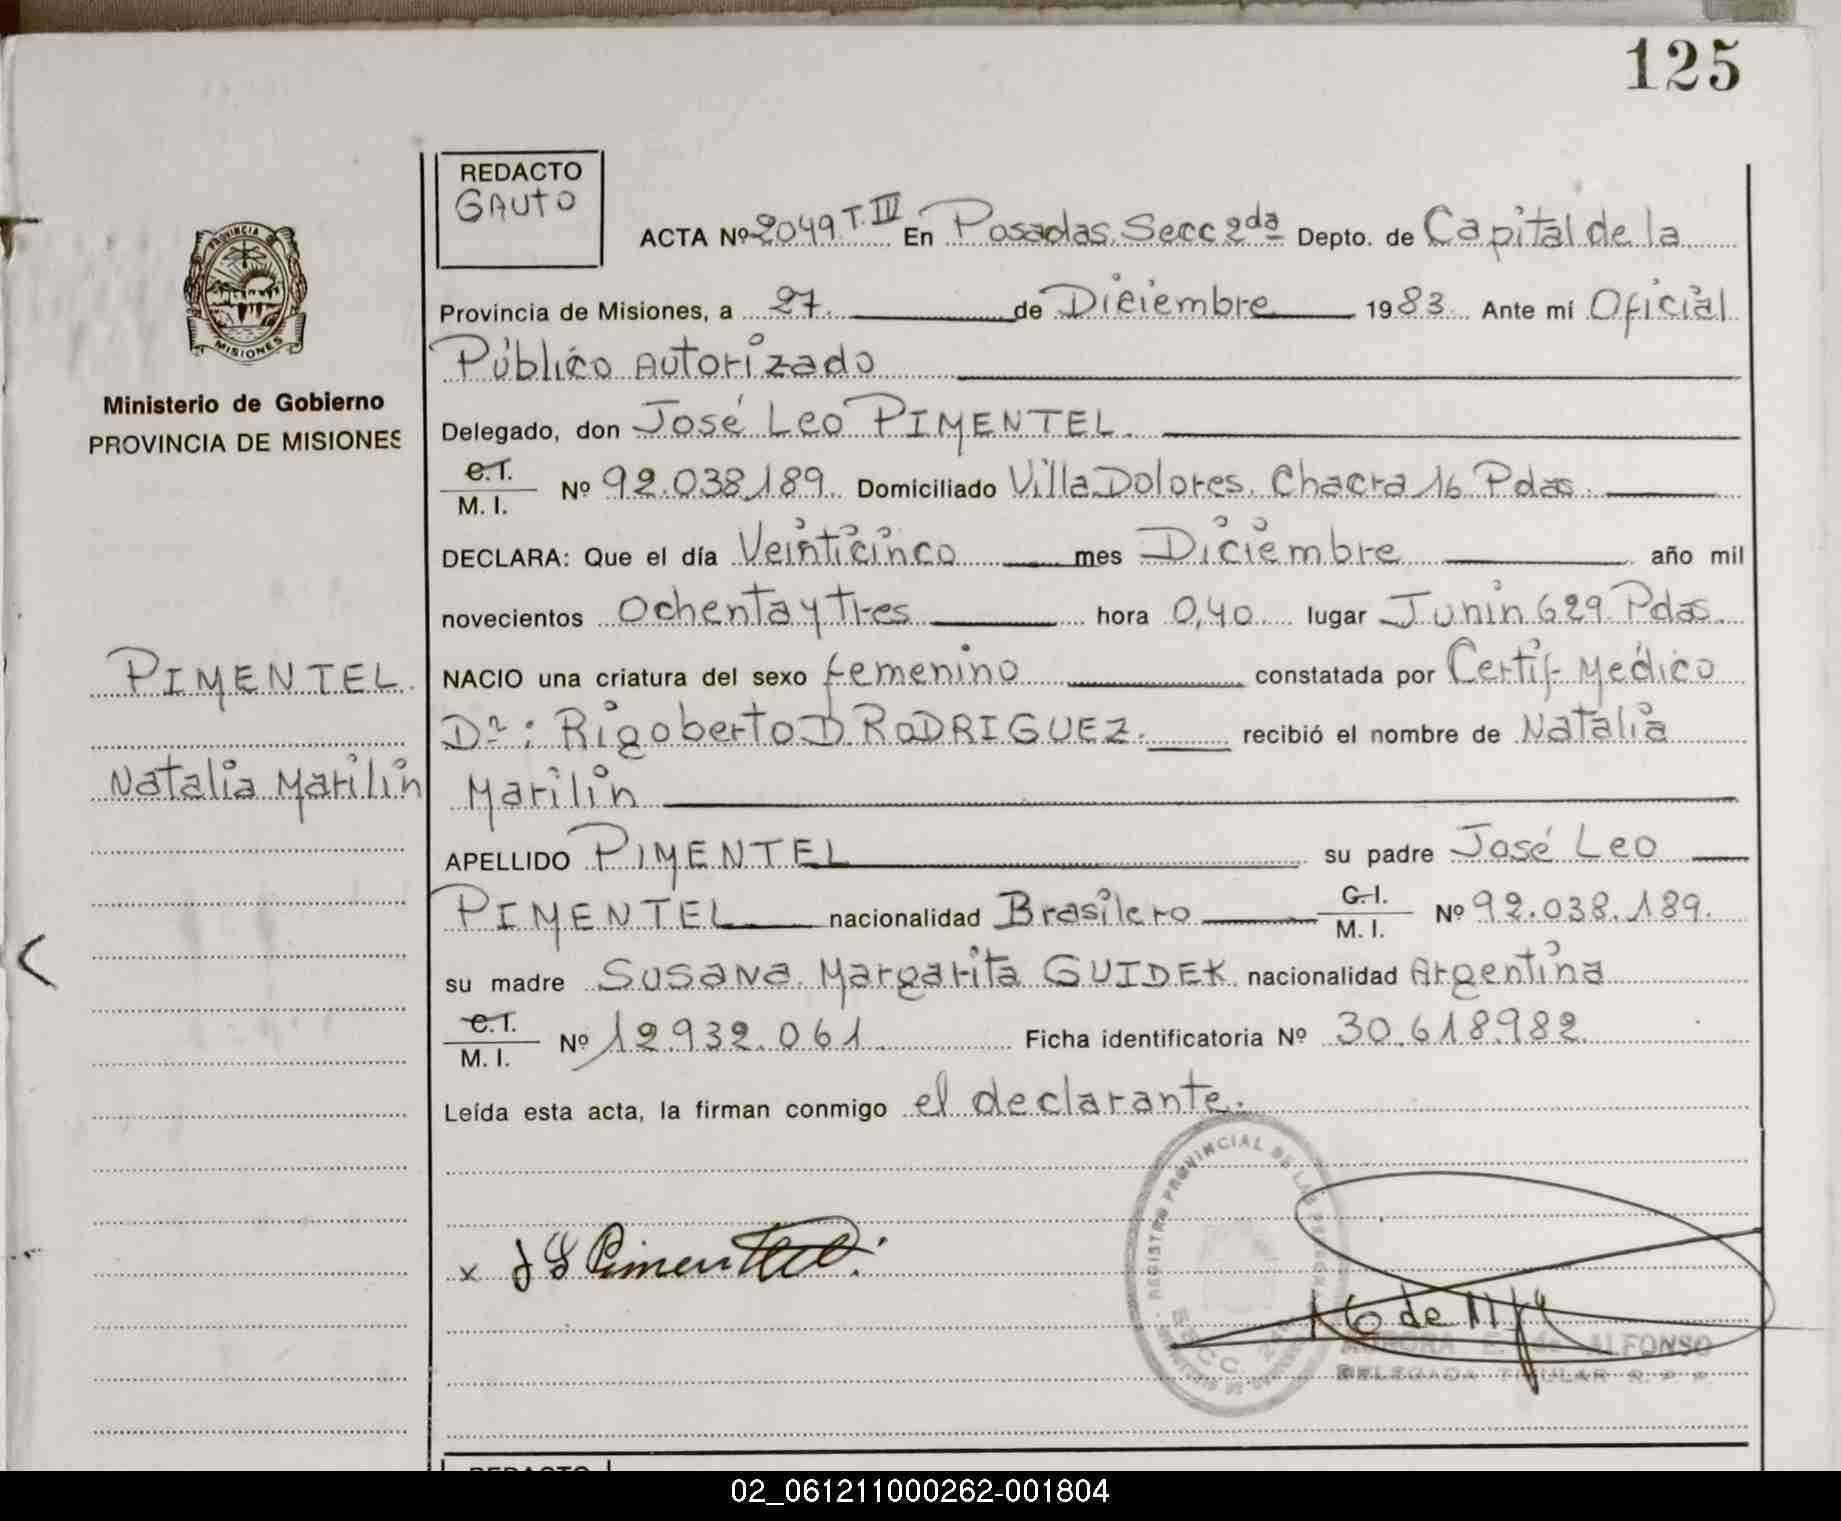 125
REDACTO
GAUTO
ACTA Nº 2049 T. IV En Posadas. Secc 2da Depto. de Capital de la
Provincia de Misiones, a 27 de Diciembre 1983. Ante mí Oficial
Público Autorizado
Delegado, don José Leo PIMENTEL.
C.I.
M. I. Nº 92.038.189. Domiciliado Villa Dolores. Chacra 16 Pdas.
DECLARA: Que el día Veinticinco mes Diciembre año mil
novecientos Ochenta y tres hora 0,40 lugar Junin 629 Pdas.
NACIO una criatura del sexo femenino constatada por Certif. Médico
Dr: Rigoberto D. RODRIGUEZ. recibió el nombre de Natalia
Marilin
APELLIDO PIMENTEL su padre José Leo
PIMENTEL nacionalidad Brasilero C.I.
M. I. Nº 92.038.189.
su madre Susana Margarita GUIDEK nacionalidad Argentina
C.I.
M. I. Nº 12.932.061. Ficha identificatoria Nº 30.618.982.
Leída esta acta, la firman conmigo el declarante.
PROVINCIA DE
MISIONES
Ministerio de Gobierno
PROVINCIA DE MISIONES
PIMENTEL.
Natalia Marilin
x J L Pimentel
REGISTRO PROVINCIAL DE LAS PERSONAS
SECC. 2da
AURORA E. de ALFONSO
DELEGADA TITULAR R. P. P.
REDACTO
02_061211000262-001804